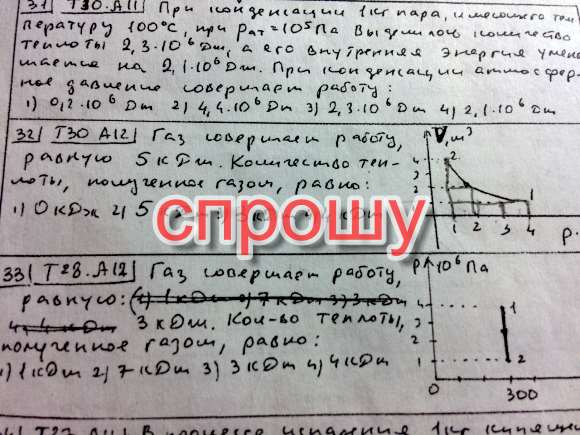 31 T30.A11 При конденсации 1 кг пара, имеющего тем
пературу 100°С, при Pат=10⁵Па выделилось количество
теплоты 2,3·10⁶ Дж, а его внутренняя энергия умень
шается на 2,1·10⁶ Дж. При конденсации атмосфер-
ное давление совершает работу:
1) 0,2·10⁶ Дж 2) 4,4·10⁶ Дж 3) 2,3·10⁶ Дж 4) 2,1·10⁶ Дж
32 T30 A12 Газ совершает работу,
равную 5 кДж. Количество теп-
лоты, полученное газом, равно:
1) 0 кДж 2) 5
V, м³
4
3
2
2
1
1 2 3 4
P.
спрошу
33 T28.A12 Газ совершает работу,
равную: 1) 1 кДж 2) 7 кДж 3) 3 кДж
4) 4 кДж 3 кДж. Кол-во теплоты,
полученное газом, равно:
1) 1 кДж 2) 7 кДж 3) 3 кДж 4) 4 кДж
P, 10⁶ Па
4
3
2
1
1
2
0 300
T27 A11 В процессе испарения 1 кг